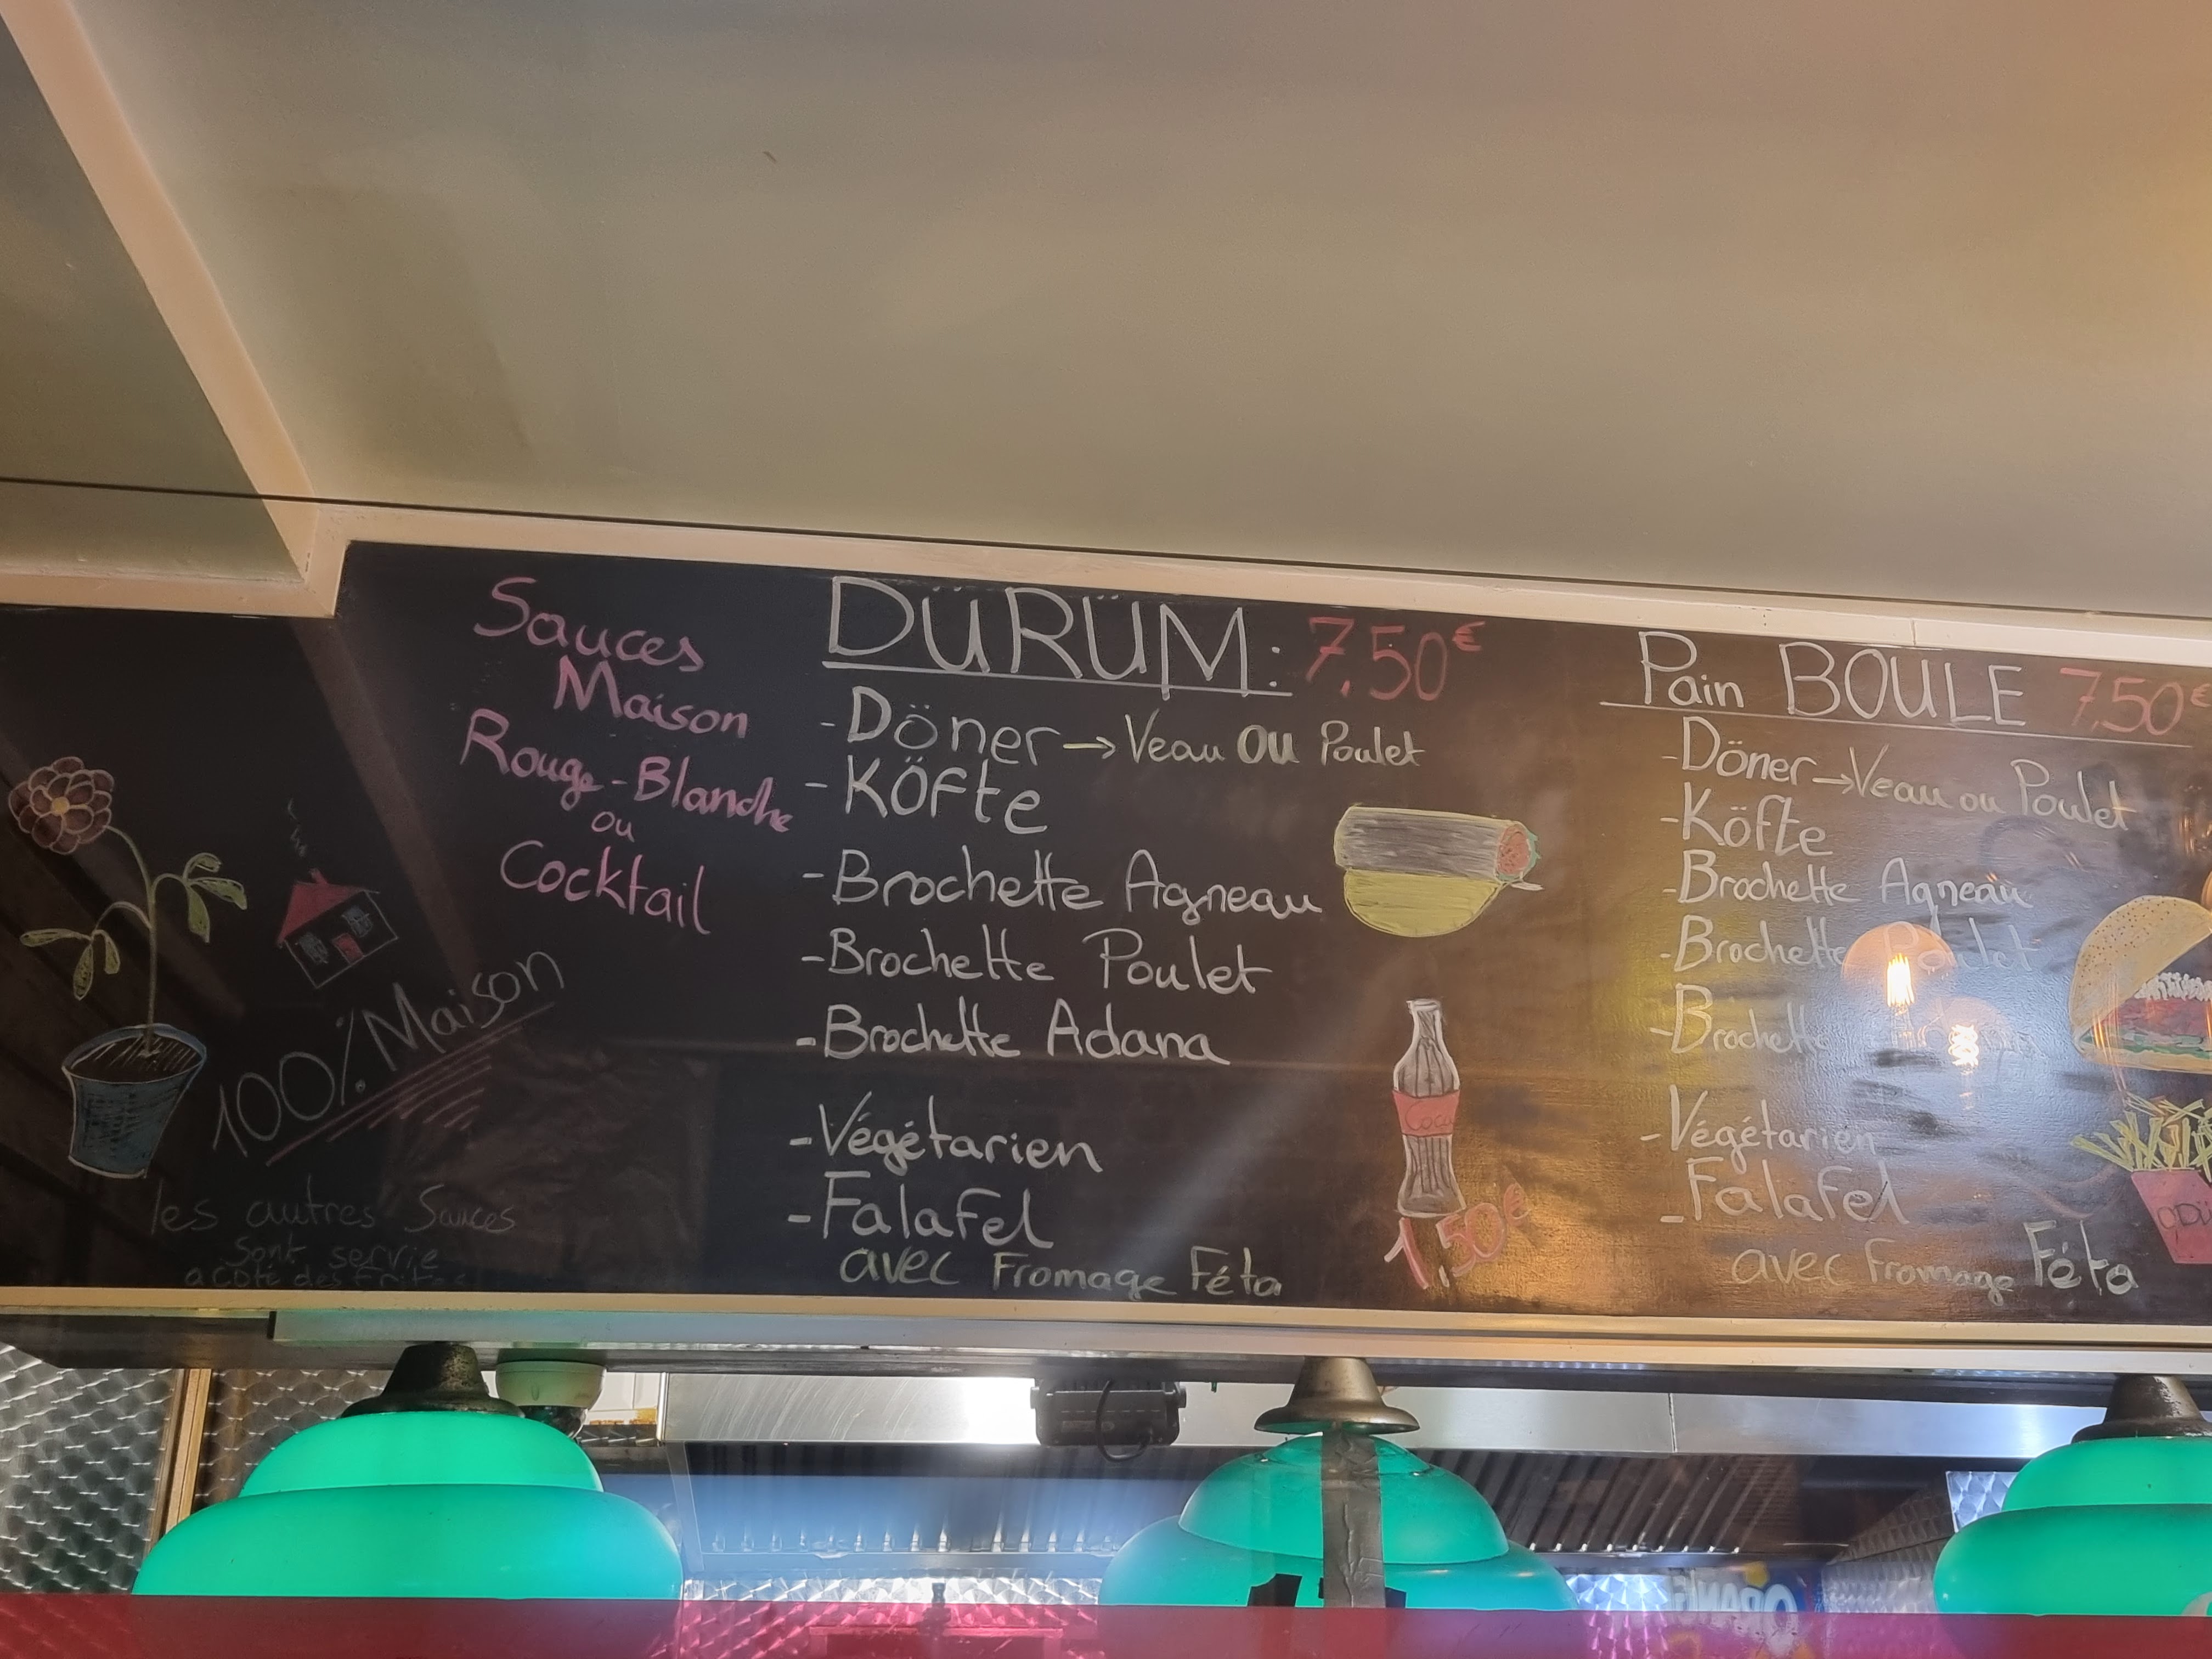 Sauces
Maison
Rouge-Blanche
ou
Cocktail
100% Maison
les autres Sauces
Sont servie
a coté des frites
DÜRÜM: 7,50€
- Döner → Veau OU Poulet
- KÖFTE
- Brochette Agneau
- Brochette Poulet
- Brochette Adana
- Végétarien
- Falafel
avec Fromage Féta
Coca
1,50€
Pain BOULE 7,50€
- Döner → Veau ou Poulet
- Köfte
- Brochette Agneau
- Brochette Poulet
- Brochette
- Végétarien
- Falafel
avec Fromage Féta